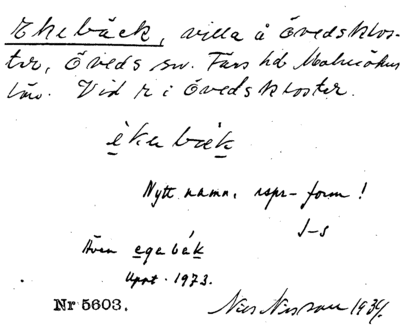 Ekebäck, villa å Övedsklos-
ter, Öveds sn. Färs hd Malmöhus
län. Vid r i Övedskloster.
èkabäk
Nytt namn, rspr-form!
J-s
Även egabäk
Uppt. 1973.
Nr 5603. Nils Nilsson 1934.